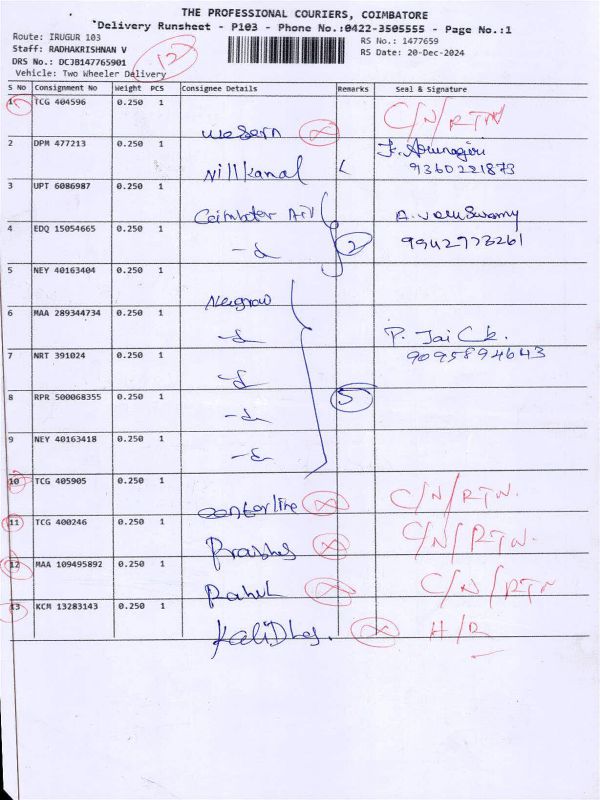 THE PROFESSIONAL COURIERS, COIMBATORE
Delivery Runsheet - P103 - Phone No.:0422-3505555 - Page No.:1
Route: IRUGUR 103
RS No.: 1477659
Staff: RADHAKRISHNAN V
RS Date: 20-Dec-2024
DRS No.: DCJB147765901
12
Vehicle: Two Wheeler Delivery
S No Consignment No Weight PCS Consignee Details Remarks Seal & Signature
1 TCG 404596 0.250 1
C/N/RTN
2 DPM 477213 0.250 1
9360221873
Nillkanal
3 UPT 6086987 0.250 1
4 EDQ 15054665 0.250 1
2
9942773261
5 NEY 40163404 0.250 1
6 MAA 289344734 0.250 1
P. Jai
7 NRT 391024 0.250 1
9095894643
8 RPR 500068355 0.250 1
5
9 NEY 40163418 0.250 1
10 TCG 405905 0.250 1
centerline C/N/RTN.
11 TCG 400246 0.250 1
C/N/RTN.
12 MAA 109495892 0.250 1
Rahul C/N/RTN
13 KCM 13283143 0.250 1
H/R